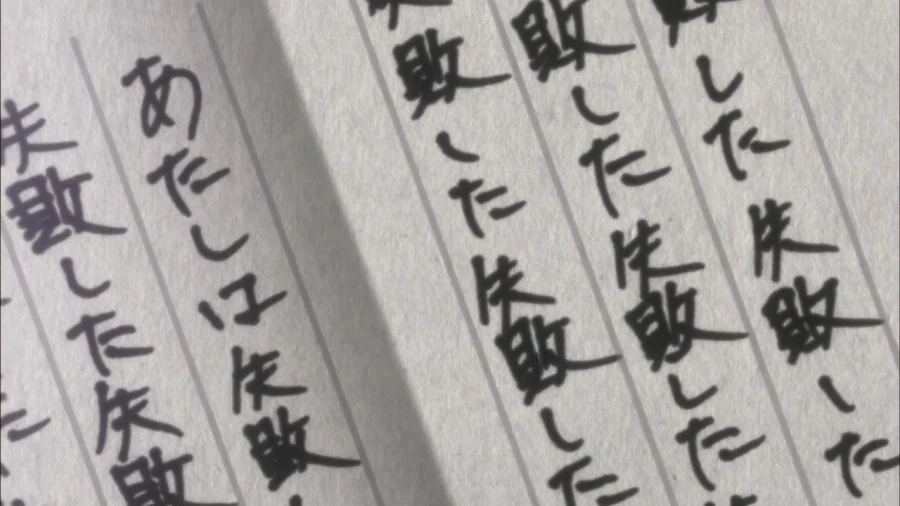 敗した失敗した
敗した失敗した
失敗した失敗した
あたしは失敗
失敗した失敗
た